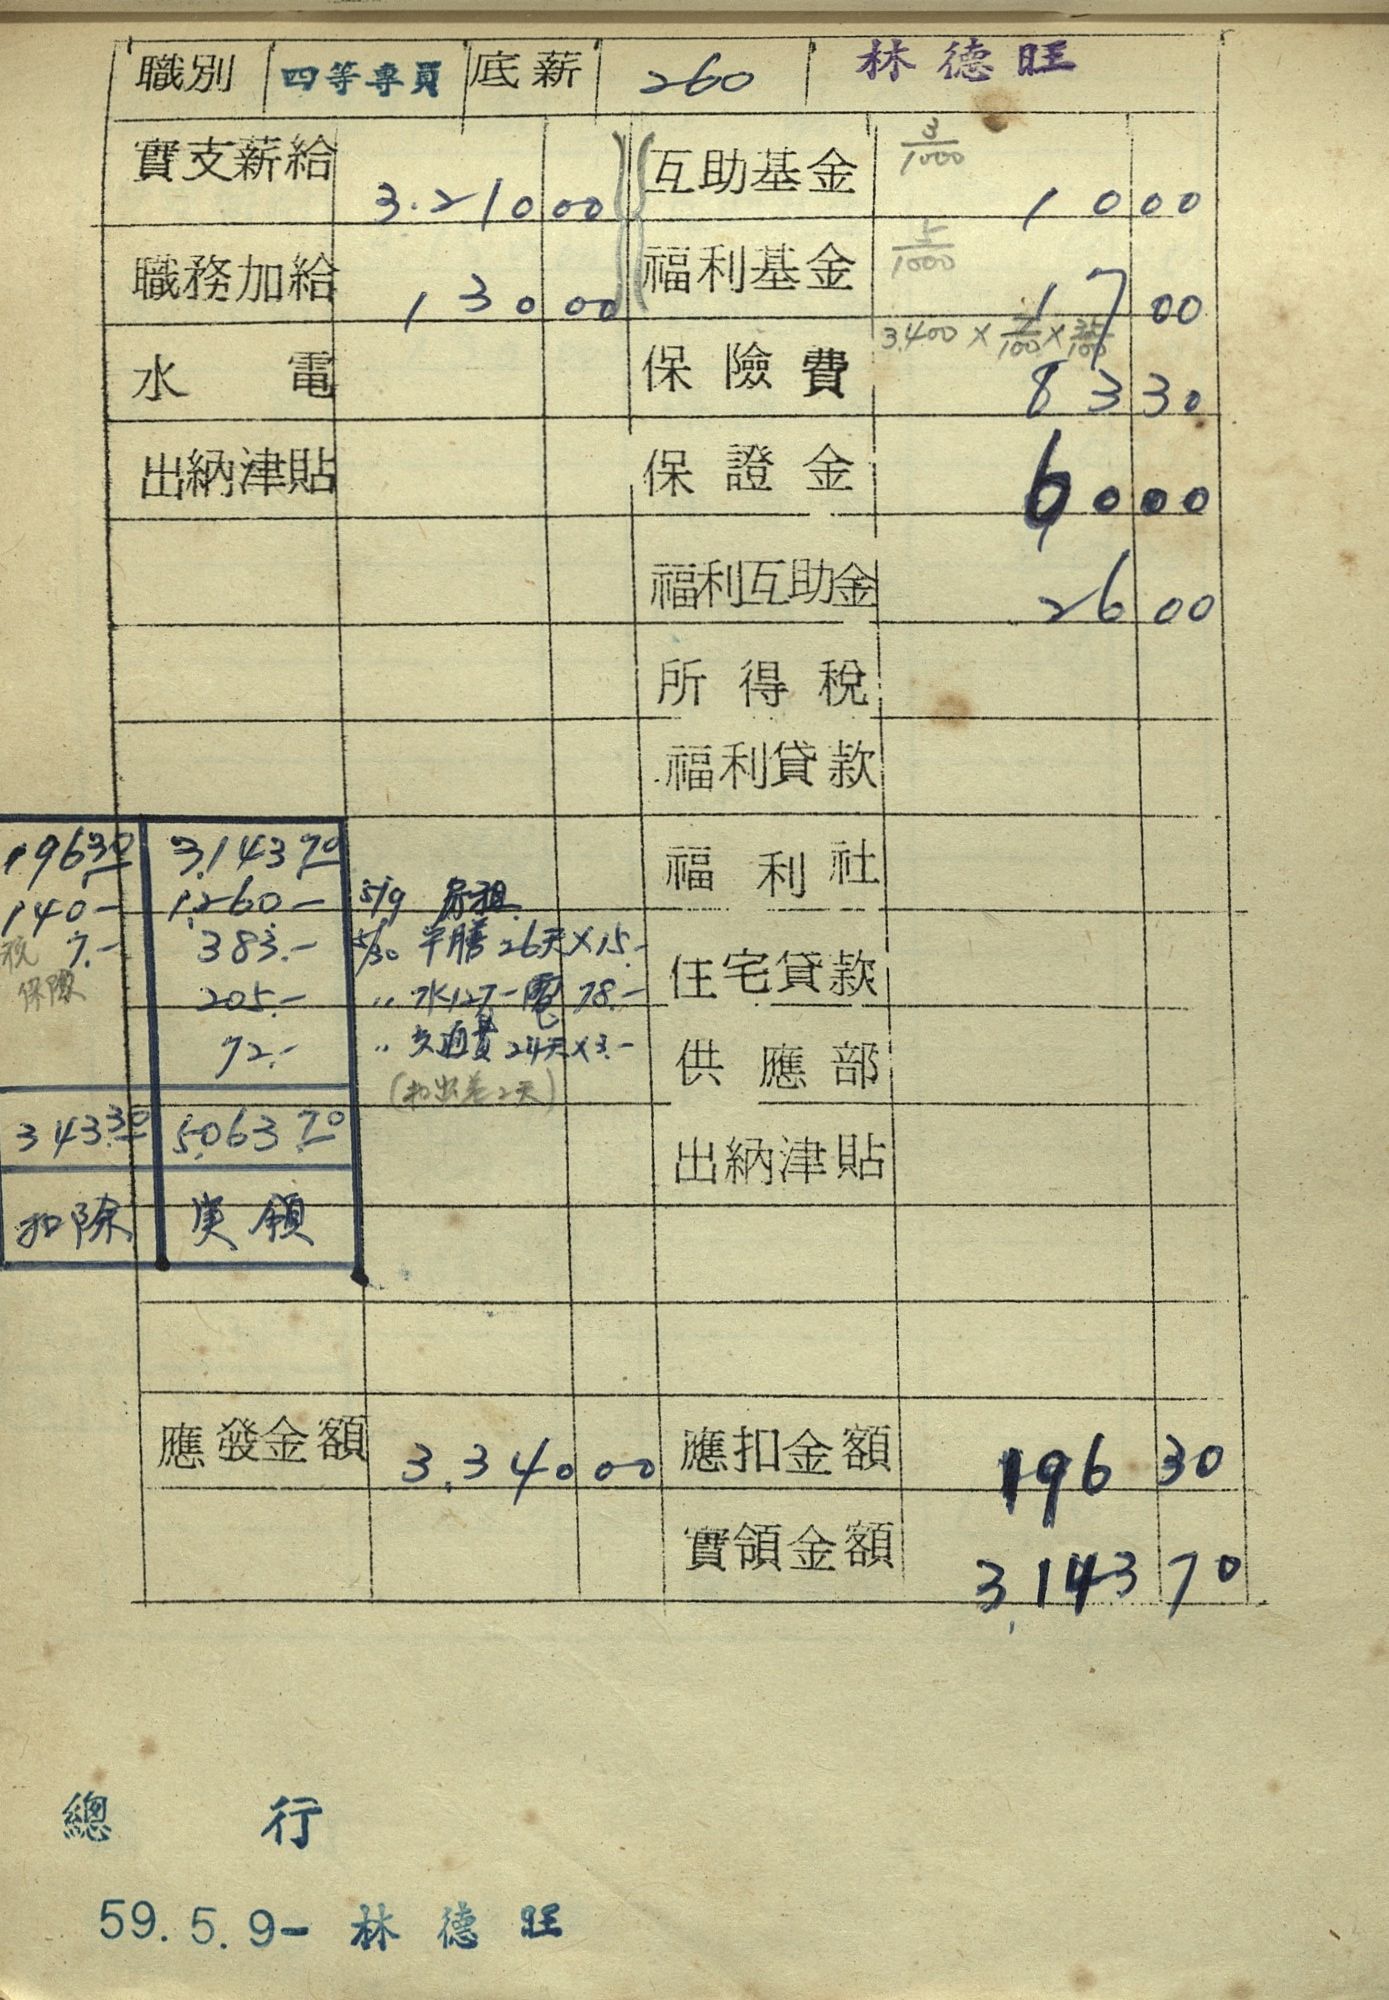 職別 四等專員 底薪 260 林德旺
實支薪給 3.210 00 互助基金 3/1000 10 00
職務加給 130 00 福利基金 5/1000 17 00
水電 保險費 3.400 × 7/100 × 35/100 83 30
出納津貼 保證金 60 00
福利互助金 26 00
所得稅
福利貸款
福利社
住宅貸款
供應部
出納津貼
196.30 3,143.70
140- 1,260- 5/9 房租
稅 7.- 383.- 5/30 半膳 26天×15.-
保險 205.- 〃 水127- 電 78.-
72.- 〃 交通費 24天×3.-
(扣出差2天)
343.30 5,063.70
扣除 実領
應發金額 3.340 00 應扣金額 196 30
實領金額 3,143 70
總行
59.5.9- 林德旺